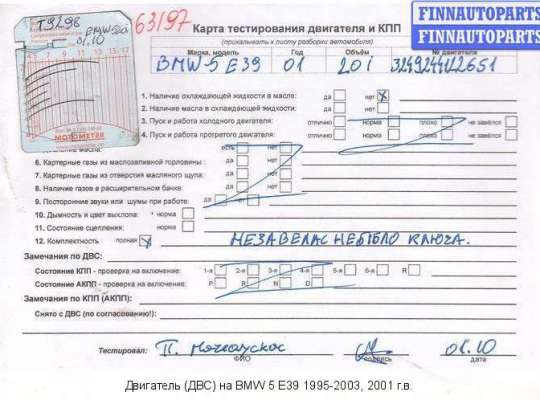 T9298
BMW-5
01.10
63197
FINNAUTOPARTS
FINNAUTOPARTS
Карта тестирования двигателя и КПП
(прикалывать к листу разборки автомобиля)
Марка, модель Год Объём № двигателя
BMW-5 E39 01 20i
MOTOMETER
1. Наличие охлаждающей жидкости в масле: да нет
2. Наличие масла в охлаждающей жидкости: да нет
3. Пуск и работа холодного двигателя: отлично норма плохо не завёлся
4. Пуск и работа прогретого двигателя: отлично норма плохо не завёлся
есть нет
6. Картерные газы из маслозаливной горловины: да нет
7. Картерные газы из отверстия масляного щупа: да нет
8. Наличие газов в расширительном бачке: да нет
9. Посторонние звуки или шумы при работе: да нет
10. Дымность и цвет выхлопа: норма
11. Состояние сцепления: норма
12. Комплектность полная НЕЗАВЕЛАС НЕБЫЛО КЛЮЧА.
Замечания по ДВС:
Состояние КПП - проверка на включение: 1-я 2-я 3-я 4-я 5-я 6-я R
Состояние АКПП - проверка на включение: P R N D
Замечания по КПП (АКПП):
Снято с ДВС (по согласованию!):
Тестировал: 01.10
ФИО подпись дата
Двигатель (ДВС) на BMW 5 E39 1995-2003, 2001 г.в.